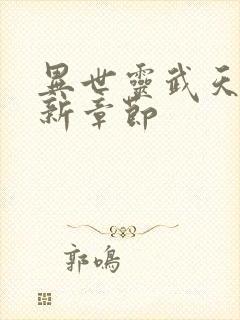 異世靈武天
新章節
郭鳴